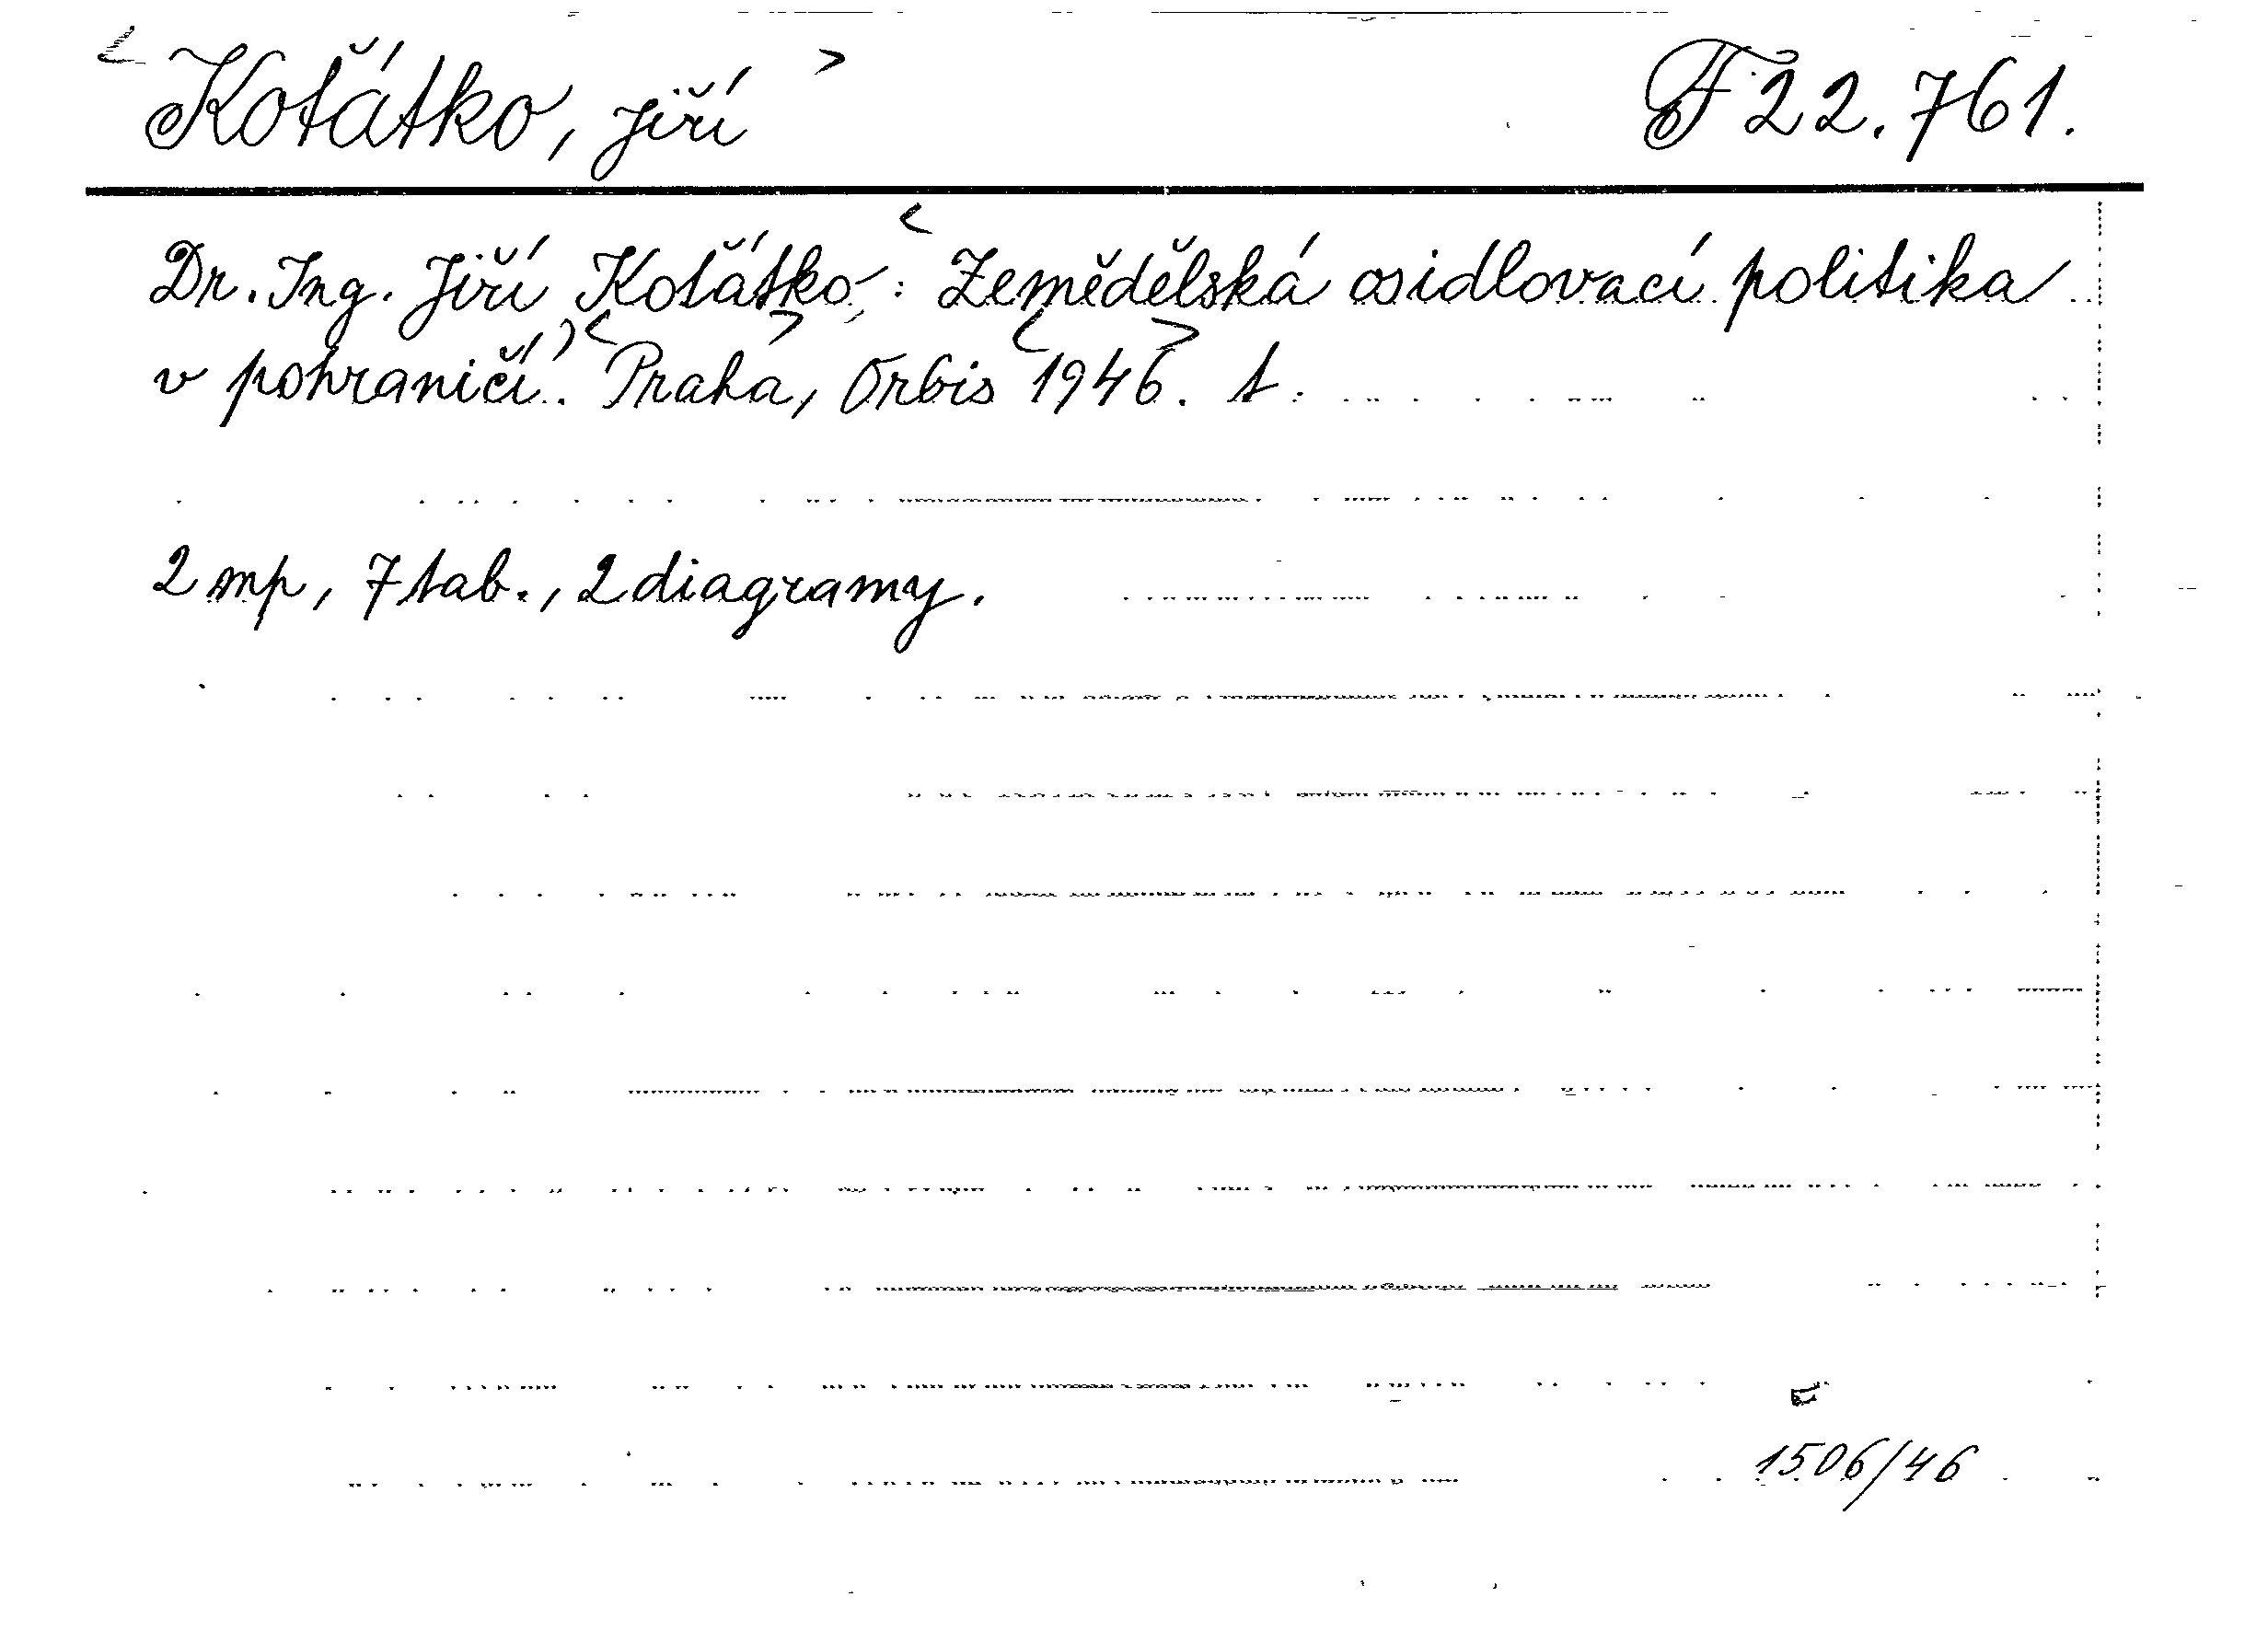 Koťátko, Jiří F 22.761.
Dr. Ing. Jiří Koťátko: Zemědělská osidlovací politika
v pohraničí. Praha, Orbis 1946. t.
2 mp, 7 tab., 2 diagramy.
1506/46